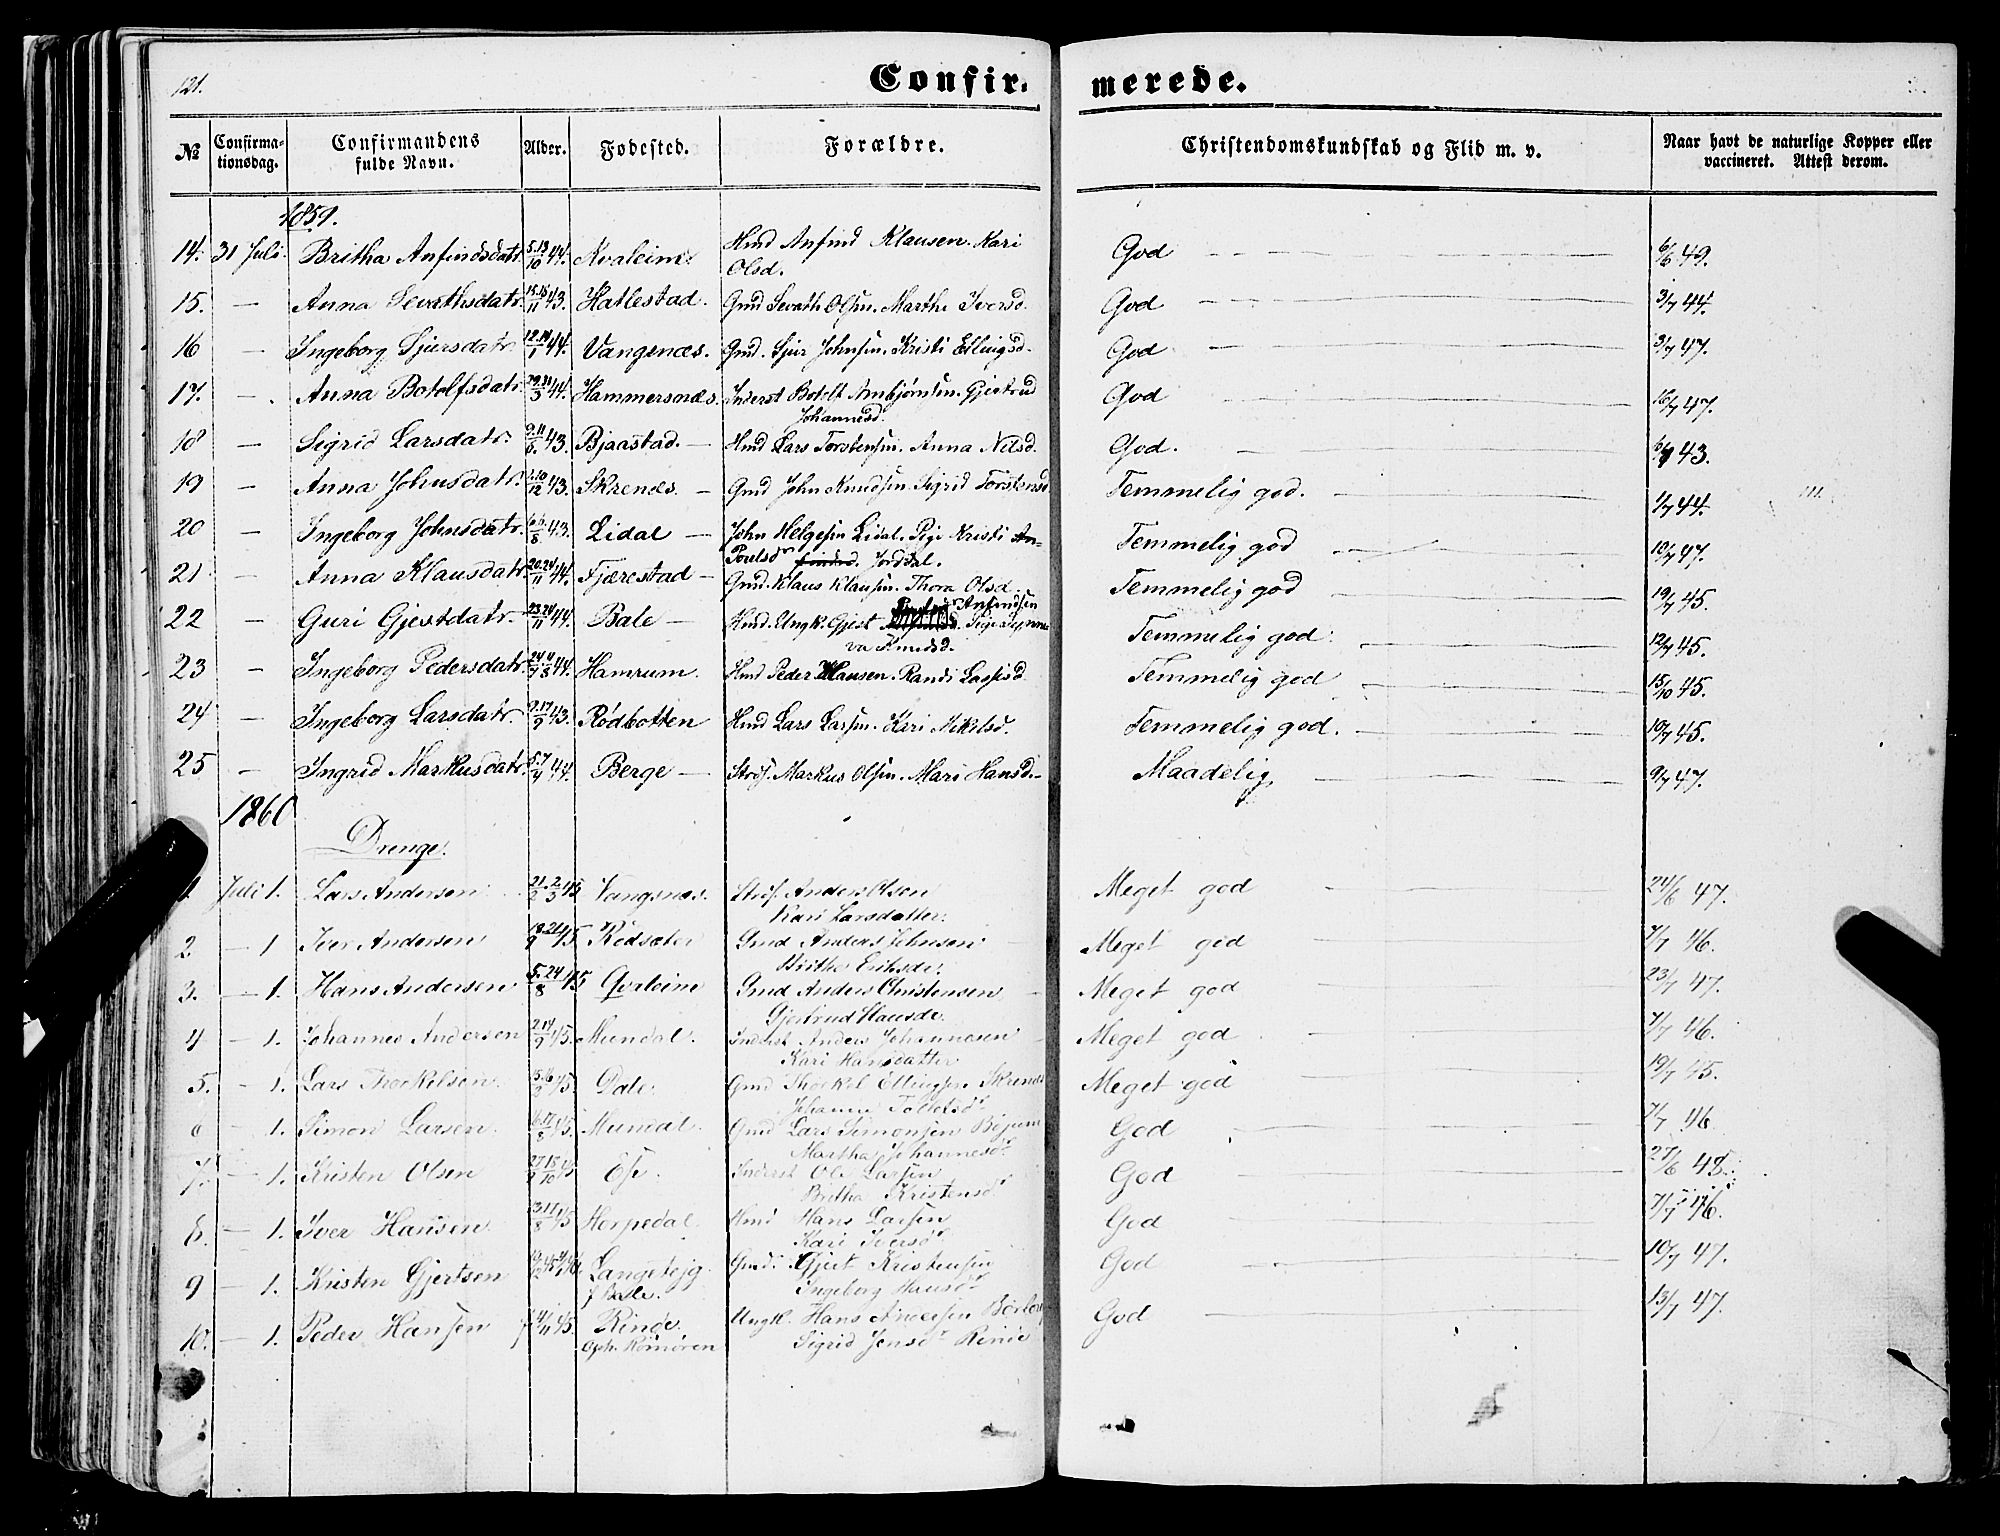 121.
Confir. merede.
№ Confirma-tionsdag. Confirmandens fulde Navn. Alder. Fødested. Forældre. Christendomskundskab og Flid m. v. Naar havt de naturlige Kopper eller vaccineret. Attest derom.
1859.
14. 31 Juli. Britha Anfindsdatr. 5.13/10 44. Kvaleim. Hmd Anfind Klausen. Kari God 6/6 49.
Olsd.
15. — Anna Sevathsdatr. 11 43. Hatlestad. Gmd Sevath Olsen. Martha Iversd. God 3/7 44.
16 — Ingeborg Sjursdatr. 12.14/1 44. Vangsnæs. Gmd. Sjur Johnsen. Kristi Ellingsd. God 3/7 47.
17. — Anna Botolfsdatr. 29.31/3 44. Hammersnæs. Inderst Botolf Arnbjørnsen. Gjertrud God 16/7 47.
Johannesd.
18 — Sigrid Larsdatr. 9.11/6 43. Bjaastad. — Hmd Lars Torstensen. Anna Nilsd. God. 43.
19 — Anna Johnsdatr. 12 43. Skrenes. — Gmd John Knudsen Sigrid Torstensd Temmelig god. 1/7 44.
20 — Ingeborg Johnsdatr. 8 43. Lidal — John Helgesen Lidal. Pige Kristi An- Temmelig god 10/7 47.
Poulsdr findsd. Jorddal.
21 — Anna Klausdatr. 20.24/11 44. Fjærestad — Gmd. Klaus Klausen. Thora Olsd. Temmelig god 19/7 45.
22 — Guri Gjestdatr. 23.24/11 44. Bale — Hmd. Ungk. Gjest Anfindsen Pige Synne Temmelig god. 12/7 45.
va Knudsd.
23 — Ingeborg Pedersdatr. 44. Hamrum. Hmd Peder Hansen. Randi Lassesd Temmelig god 15/10 45.
24 — Ingeborg Larsdatr. 9.17/9 43. Rødbotten Hmd Lars Larsen. Kari Mikelsd. Temmelig god. 10/7 45.
25 — Ingrid Markusdatr. 5.7/4 44. Berge — Strds. Markus Olsen. Mari Hansd. Maadelig 9/7 47.
1860
Drenge.
1 Juli 1. Lars Andersen 21/2.2/3 45 Vangsnæs. Strds. Anders Olsen Meget god 24/6 47.
Kari Larsdatter.
2. — 1 Iver Andersen 18.21/9 45 Rødsæter Gmd Anders Johnsen. Meget god 7/7 46.
Britha Eriksdr.
3. — 1. Hans Andersen 5.24/8 45 Qvrleim Gmd Anders Christensen Meget god 23/7 47.
Gjertrud Hansdr.
4 — 1. Johannes Andersen 2.14/9 45. Mundal. Inderst Anders Johannesen Meget god 7/7 46.
Kari Hansdatter
5. — 1. Lars Thorkelsen 2 45. Dale. Gmd Thorkel Ellingsen Skrenes Meget god 19/7 45.
Johanne Tollefsdr
6 1. Simon Larsen. 8 45. Mundal. Gmd Lars Simonsen Bøjum God 7/7 46.
Martha Johannesdr
7. — 1. Kristen Olsen 27/9 18/10 45 Ese. Inderst Ole Larsen God 27/6 48.
Britha Kristensdr
8. — 1. Iver Hansen 13.17/8 45 Horpedal Hmd Hans Larsen God 7/7 46.
Kari Iversdr
9 — 1. Kristen Gjertsen 12 45 Langeteig Gmd. Gjert Kristensen God 10/7 47.
f Bale. Ingeborg Hansdr
10. — 1. Peder Hansen 4/11 45. Rinde. Ungk. Hans Andersen God 13/7 47.
Oph. Rømøren Sigrid Jensdr Rinde